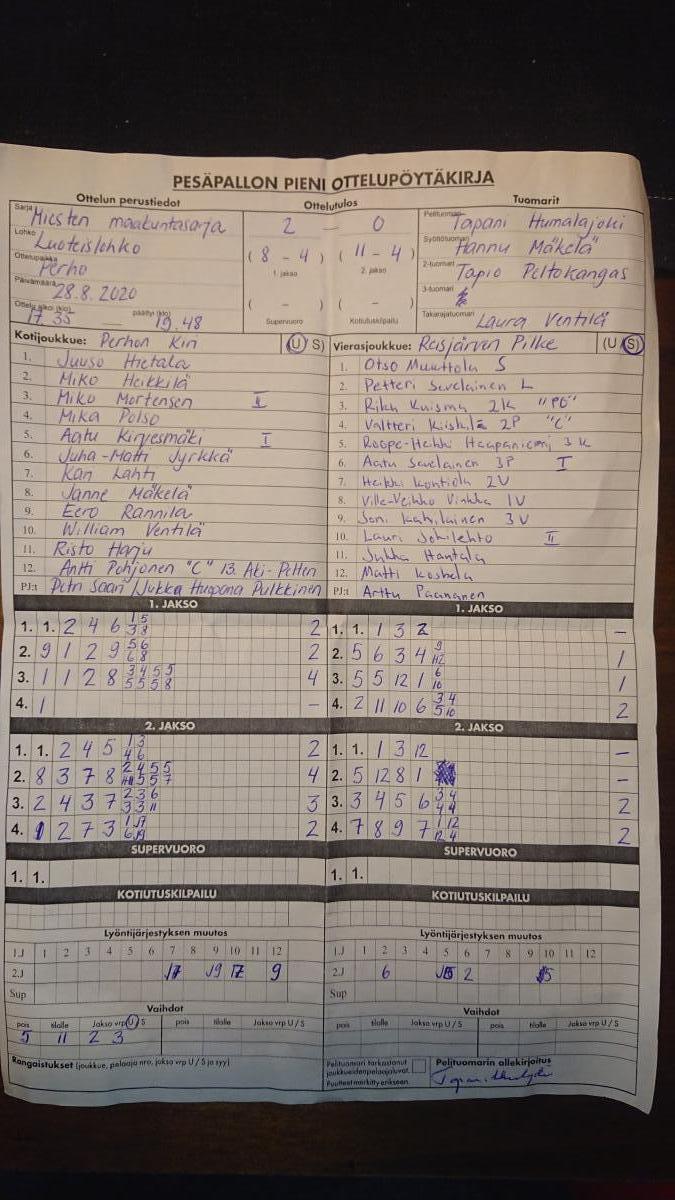 PESÄPALLON PIENI OTTELUPÖYTÄKIRJA
Ottelun perustiedot
Sarja Miesten maakuntasarja
Lohko Luoteislohko
Ottelupaikka Perho
Päivämäärä 28.8.2020
Ottelu alkoi (klo) 17.35 päättyi (klo) 19.48
Ottelutulos
2 - 0
( 8 - 4 ) ( 11 - 4 )
1. jakso 2. jakso
( - ) ( - )
Supervuoro Kotiutuskilpailu
Tuomarit
Pelituomari Tapani Humalajoki
Syöttötuomari Hannu Mäkelä
2-tuomari Tapio Peltokangas
3-tuomari
Takarajatuomari Laura Ventilä
Kotijoukkue: Perhon Kiri (U S)
1. Juuso Hietala
2. Miko Heikkilä
3. Miko Mortensen II
4. Mika Polso
5. Aatu Kirvesmäki I
6. Juha-Matti Jyrkkä
7. Kari Lahti
8. Janne Mäkelä
9. Eero Rannila
10. William Ventilä
11. Risto Harju
12. Antti Pohjonen "C" 13. Aki-Petteri
PJ:t Petri Saari / Jukka Huopana Pulkkinen
Vierasjoukkue: Reisjärven Pilke (U S)
1. Otso Muuttola S
2. Petteri Savelainen L
3. Riku Kuisma 2K "PO"
4. Valtteri 2P "C"
5. Roope-Heikki Haapaniemi 3K
6. Aatu Savelainen 3P I
7. Heikki Kontiola 2V
8. Ville-Veikko Vinkka 1V
9. Joni 3V
10. Lauri Jokilehto II
11. Jukka Hantala
12. Matti Koskela
PJ:t Arttu Paananen
1. JAKSO
1. 1. 2 4 6 1 5 2
3 8
2. 9 1 2 9 5 6 2
6 8
3. 1 1 2 8 3 4 5 5 4
5 5 5 8
4. 1 -
1. JAKSO
1. 1. 1 3 2 -
2. 5 6 3 4 9 1
12
3. 5 5 12 1 6 1
10
4. 2 11 10 6 3 4 2
5 10
2. JAKSO
1. 1. 2 4 5 1 3 2
4 6
2. 8 3 7 8 2 4 5 5 4
11 5 5 7
3. 2 4 3 7 2 3 6 3
3 3 11
4. 1 2 7 3 2
2. JAKSO
1. 1. 1 3 12 -
2. 5 12 8 1 -
3. 3 4 5 6 3 4 2
4 4
4. 7 8 9 7 1 12 2
12 4
SUPERVUORO
1. 1.
SUPERVUORO
1. 1.
KOTIUTUSKILPAILU
KOTIUTUSKILPAILU
Lyöntijärjestyksen muutos
1.J 1 2 3 4 5 6 7 8 9 10 11 12
2.J 9
Sup
Lyöntijärjestyksen muutos
1.J 1 2 3 4 5 6 7 8 9 10 11 12
2.J 6 2
Sup
Vaihdot
pois tilalle Jakso vrp U / S pois tilalle Jakso vrp U / S
5 11 2 3
Vaihdot
pois tilalle Jakso vrp U / S pois tilalle Jakso vrp U / S
Rangaistukset (joukkue, pelaaja nro, jakso vrp U / S ja syy)
Pelituomari tarkastanut
joukkueidenpelaajaluvat.
Puutteet merkitty erikseen.
Pelituomarin allekirjoitus